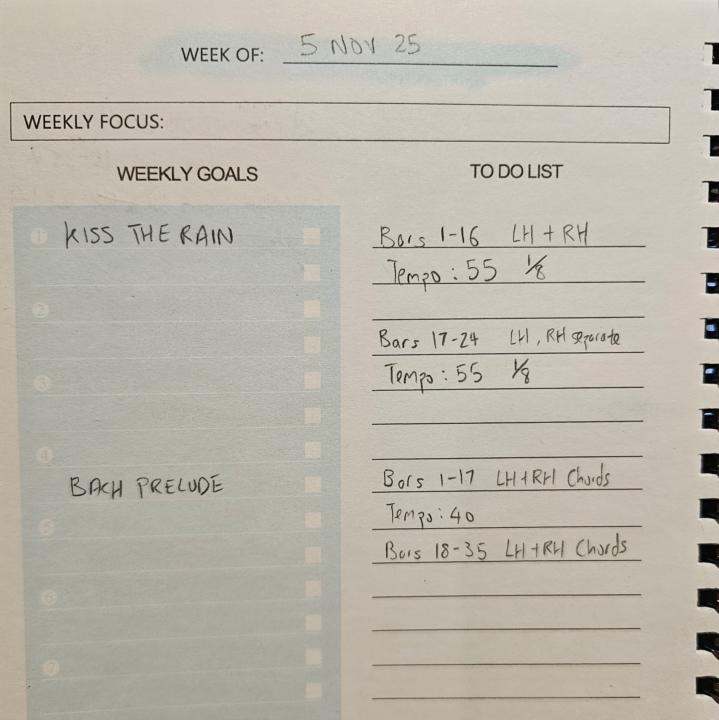 WEEK OF: 5 NOV 25
WEEKLY FOCUS:
WEEKLY GOALS
1 KISS THE RAIN
2
3
4
BACH PRELUDE
5
6
7
TO DO LIST
Bars 1-16 LH + RH
Tempo: 55 1/8
Bars 17-24 LH, RH separate
Tempo: 55 1/8
Bars 1-17 LH+RH Chords
Tempo: 40
Bars 18-35 LH+RH Chords